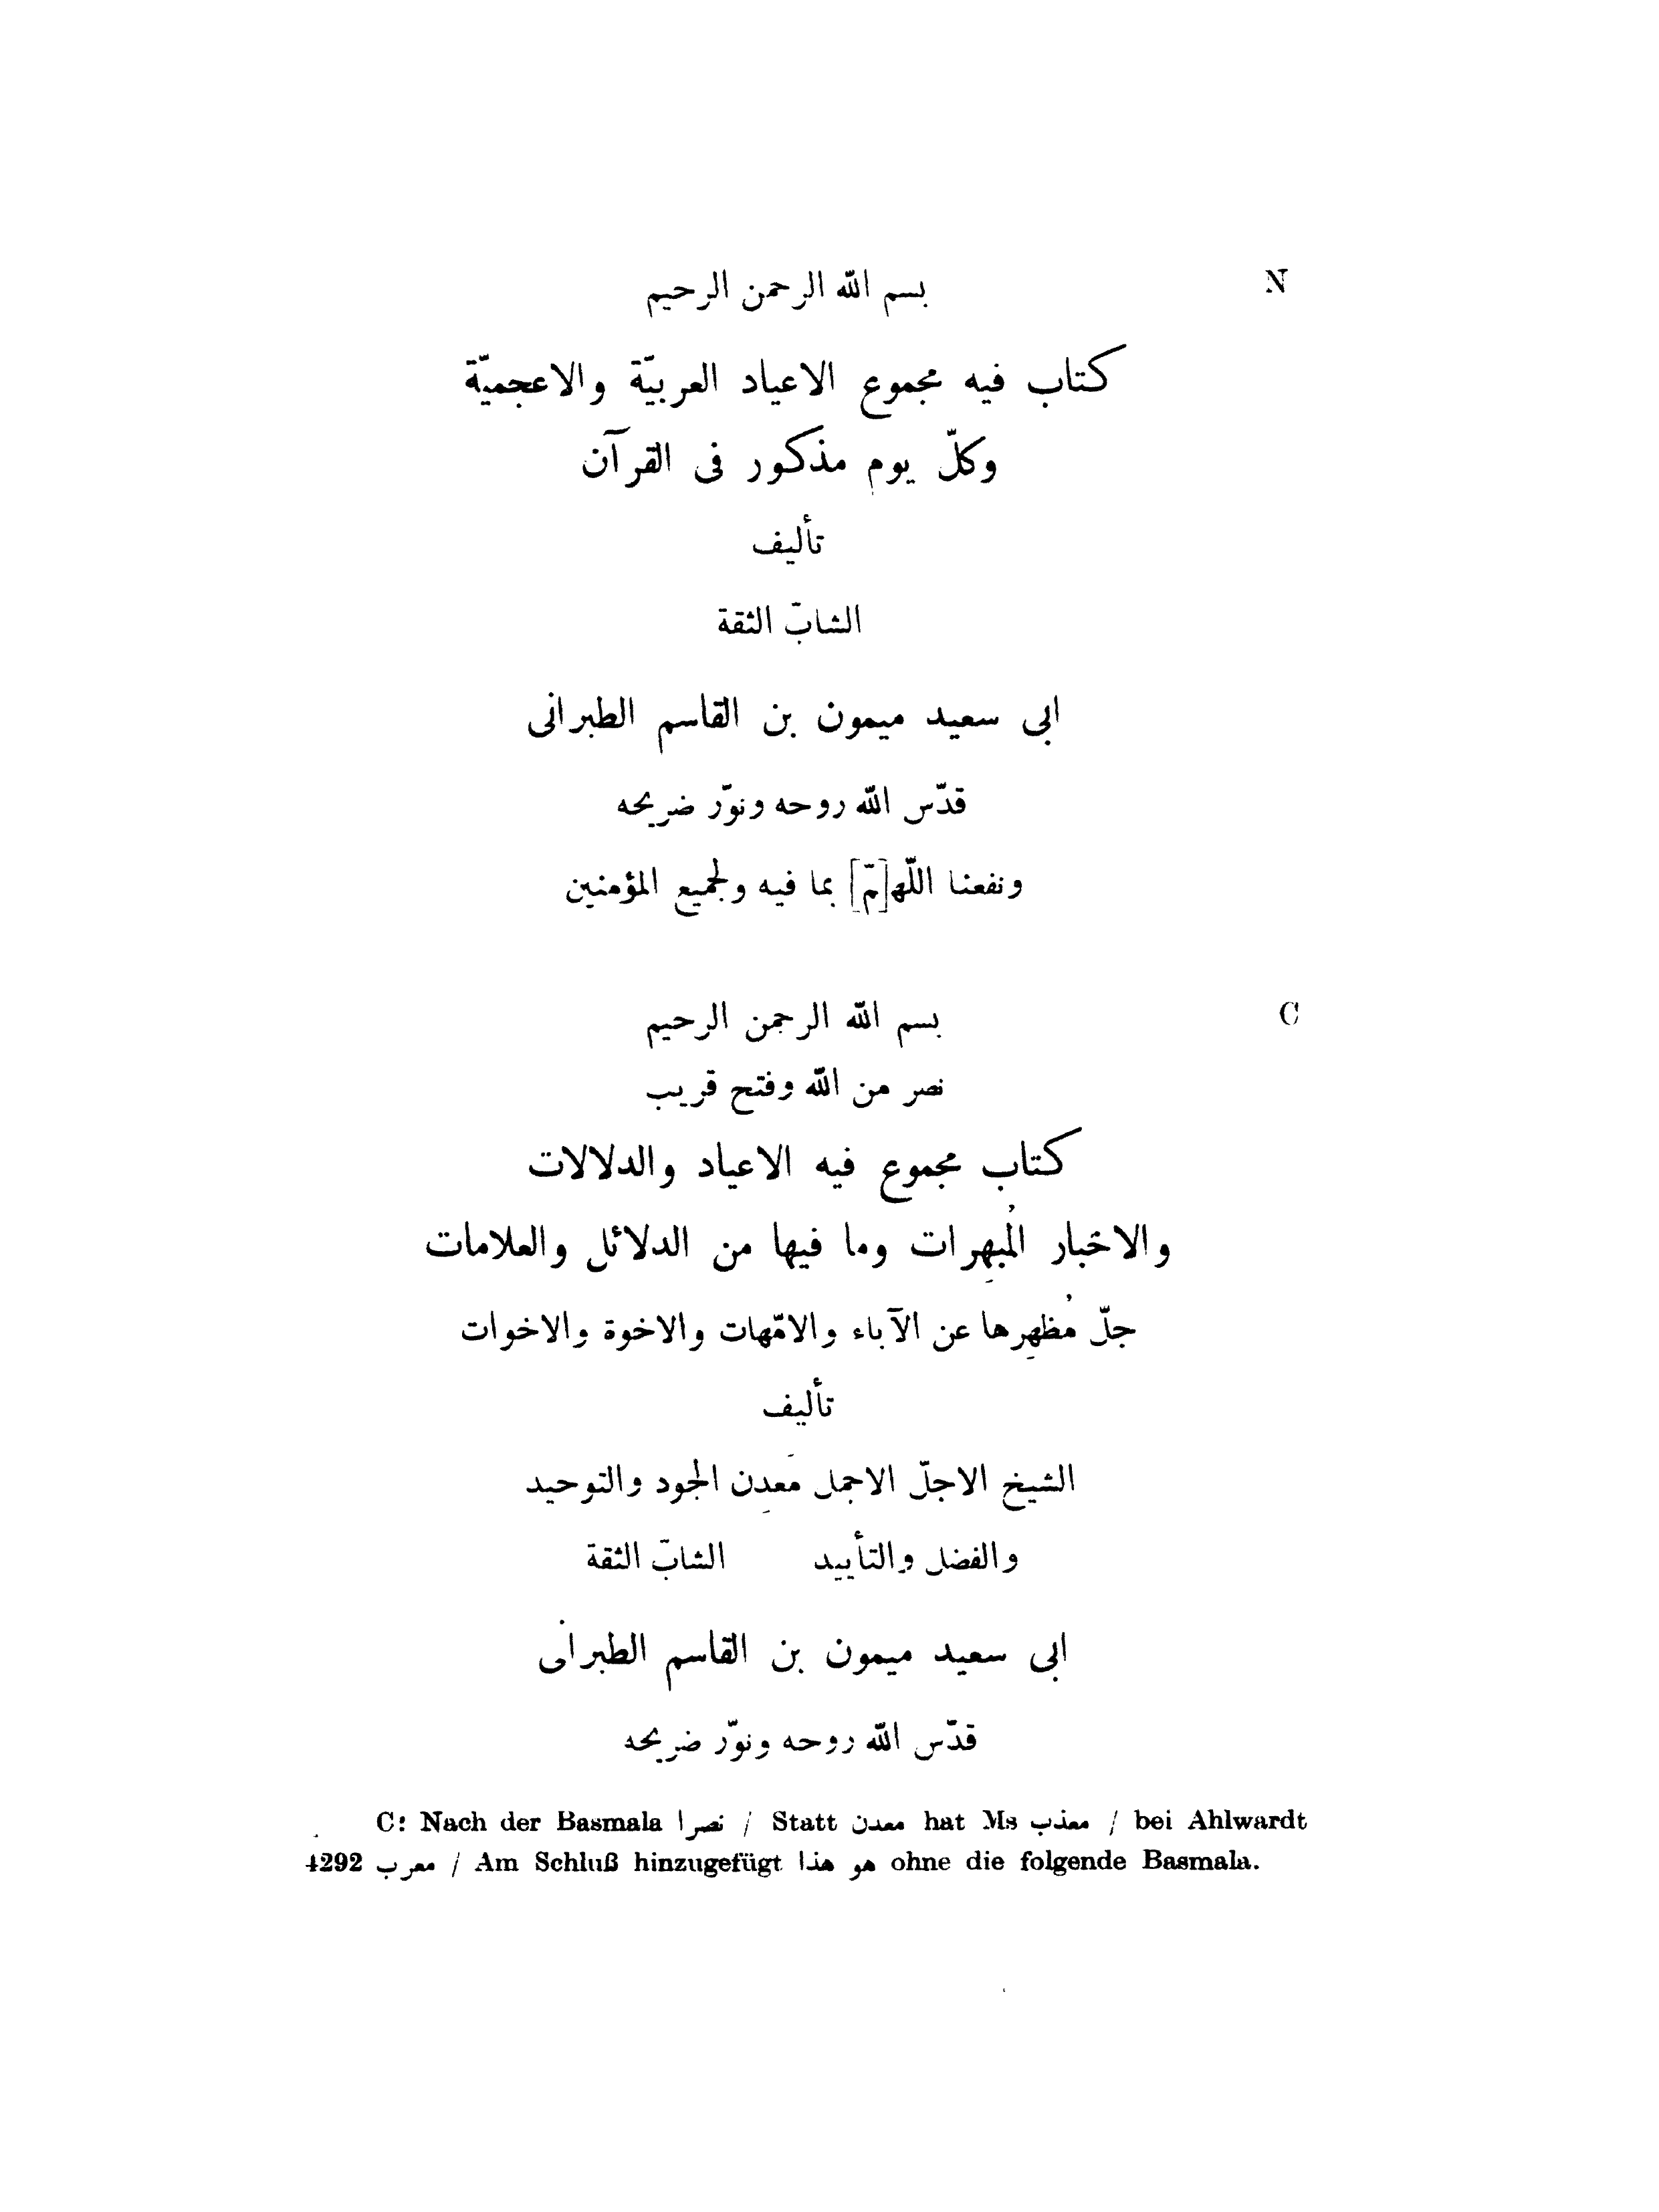 N
بسم الله الرحمن الرحيم
كتاب فيه مجموع الاعياد العربيّة والاعجميّة
وكلّ يوم مذكور فى القرآن
تأليف
الشابّ الثقة
ابى سعيد ميمون بن القاسم الطبرانى
قدّس الله روحه ونوّر ضريحه
ونفعنا اللّه[مّ] بما فيه ولجميع المؤمنين
C
بسم الله الرحمن الرحيم
نصر من الله وفتح قريب
كتاب مجموع فيه الاعياد والدلالات
والاخبار المُبهِرات وما فيها من الدلائل والعلامات
جلّ مُظهِرها عن الآباء والامّهات والاخوة والاخوات
تأليف
الشيخ الاجلّ الاجمل مَعدِن الجود والتوحيد
والفضل والتأييد الشابّ الثقة
ابى سعيد ميمون بن القاسم الطبرانى
قدّس الله روحه ونوّر ضريحه
C: Nach der Basmala نصرا / Statt معدن hat Ms معذب / bei Ahlwardt
4292 معرب / Am Schluß hinzugefügt هو هذا ohne die folgende Basmala.